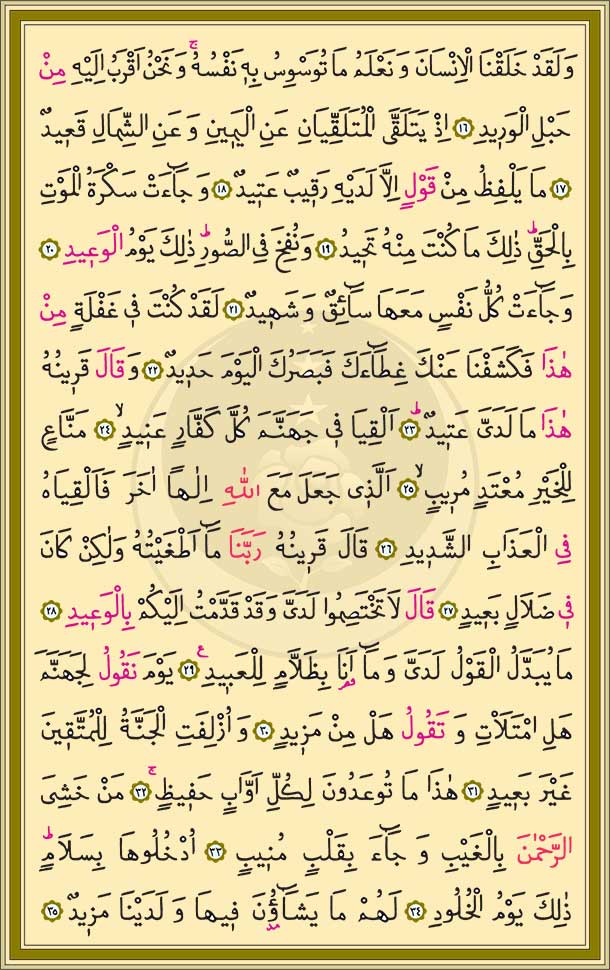 وَلَقَدْ خَلَقْنَا الْاِنْسَانَ وَنَعْلَمُ مَا تُوَسْوِسُ بِهٖ نَفْسُهُۚ وَنَحْنُ اَقْرَبُ اِلَيْهِ مِنْ
حَبْلِ الْوَرٖيدِ ﴿١٦﴾ اِذْ يَتَلَقَّى الْمُتَلَقِّيَانِ عَنِ الْيَمٖينِ وَعَنِ الشِّمَالِ قَعٖيدٌ
﴿١٧﴾ مَا يَلْفِظُ مِنْ قَوْلٍ اِلَّا لَدَيْهِ رَقٖيبٌ عَتٖيدٌ ﴿١٨﴾ وَجَٓاءَتْ سَكْرَةُ الْمَوْتِ
بِالْحَقِّؕ ذٰلِكَ مَا كُنْتَ مِنْهُ تَحٖيدُ ﴿١٩﴾ وَنُفِخَ فِي الصُّورِؕ ذٰلِكَ يَوْمُ الْوَعٖيدِ ﴿٢٠﴾
وَجَٓاءَتْ كُلُّ نَفْسٍ مَعَهَا سَٓائِقٌ وَشَهٖيدٌ ﴿٢١﴾ لَقَدْ كُنْتَ فٖي غَفْلَةٍ مِنْ
هٰذَا فَكَشَفْنَا عَنْكَ غِطَٓاءَكَ فَبَصَرُكَ الْيَوْمَ حَدٖيدٌ ﴿٢٢﴾ وَقَالَ قَرٖينُهُ
هٰذَا مَا لَدَيَّ عَتٖيدٌؕ ﴿٢٣﴾ اَلْقِيَا فٖي جَهَنَّمَ كُلَّ كَفَّارٍ عَنٖيدٍۙ ﴿٢٤﴾ مَنَّاعٍ
لِلْخَيْرِ مُعْتَدٍ مُرٖيبٍۙ ﴿٢٥﴾ اَلَّذٖي جَعَلَ مَعَ اللّٰهِ اِلٰهاً اٰخَرَ فَاَلْقِيَاهُ
فِي الْعَذَابِ الشَّدٖيدِ ﴿٢٦﴾ قَالَ قَرٖينُهُ رَبَّنَا مَٓا اَطْغَيْتُهُ وَلٰكِنْ كَانَ
فٖي ضَلَالٍ بَعٖيدٍ ﴿٢٧﴾ قَالَ لَا تَخْتَصِمُوا لَدَيَّ وَقَدْ قَدَّمْتُ اِلَيْكُمْ بِالْوَعٖيدِ ﴿٢٨﴾
مَا يُبَدَّلُ الْقَوْلُ لَدَيَّ وَمَٓا اَنَا۬ بِظَلَّامٍ لِلْعَبٖيدِ ﴿٢٩﴾ ع يَوْمَ نَقُولُ لِجَهَنَّمَ
هَلِ امْتَلَأْتِ وَتَقُولُ هَلْ مِنْ مَزٖيدٍ ﴿٣٠﴾ وَاُزْلِفَتِ الْجَنَّةُ لِلْمُتَّقٖينَ
غَيْرَ بَعٖيدٍ ﴿٣١﴾ هٰذَا مَا تُوعَدُونَ لِكُلِّ اَوَّابٍ حَفٖيظٍۚ ﴿٣٢﴾ مَنْ خَشِيَ
الرَّحْمٰنَ بِالْغَيْبِ وَجَٓاءَ بِقَلْبٍ مُنٖيبٍ ﴿٣٣﴾ اُدْخُلُوهَا بِسَلَامٍؕ
ذٰلِكَ يَوْمُ الْخُلُودِ ﴿٣٤﴾ لَهُمْ مَا يَشَٓاؤُ۫نَ فٖيهَا وَلَدَيْنَا مَزٖيدٌ ﴿٣٥﴾